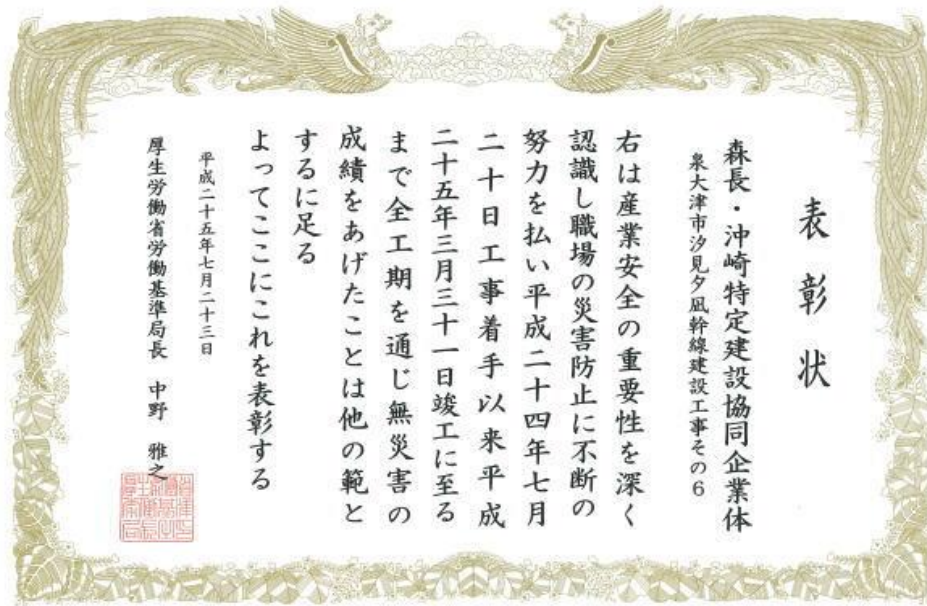 表彰状
森長・沖崎特定建設協同企業体
泉大津市汐見夕凪幹線建設工事その6
右は産業安全の重要性を深く
認識し職場の災害防止に不断の
努力を払い平成二十四年七月
二十日工事着手以来平成
二十五年三月三十一日竣工に至る
まで全工期を通じ無災害の
成績をあげたことは他の範と
するに足る
よってここにこれを表彰する
平成二十五年七月二十三日
厚生労働省労働基準局長 中野 雅之